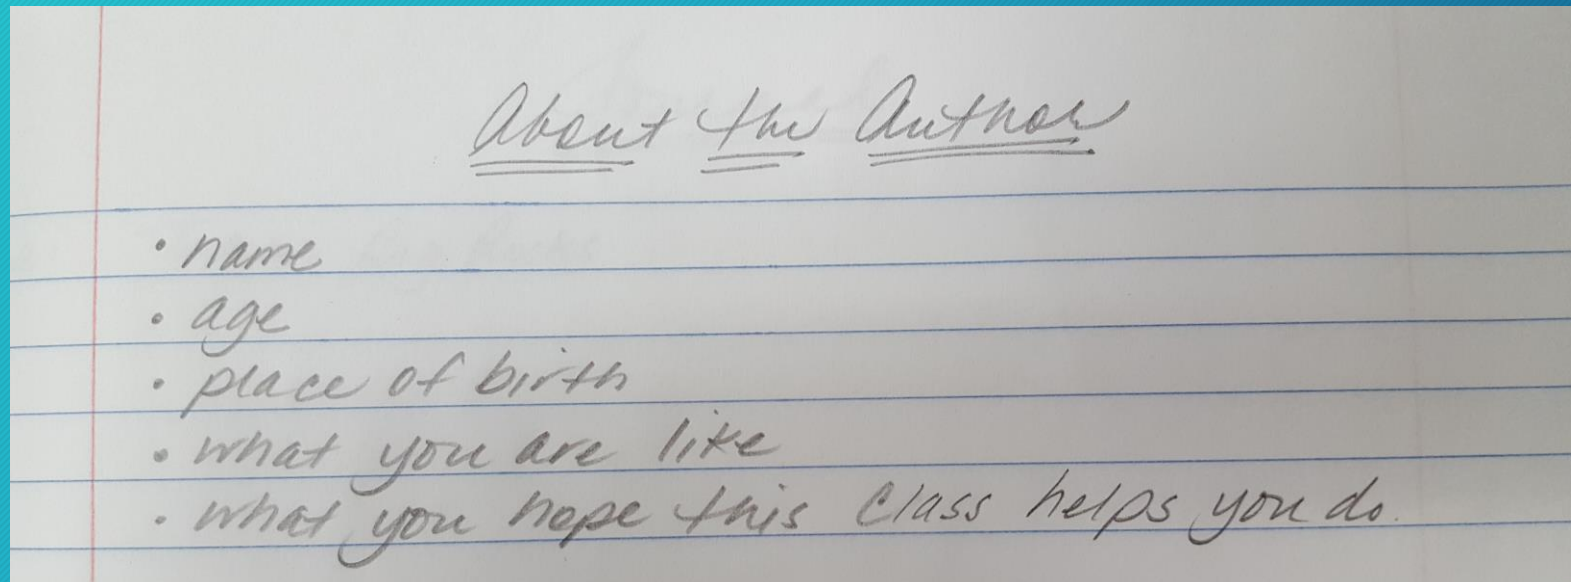 About the Author
• name
• age
• place of birth
• what you are like
• what you hope this class helps you do.